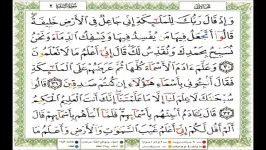 وَإِذْ قَالَ رَبُّكَ لِلْمَلَٰٓئِكَةِ إِنِّى جَاعِلٌ فِى ٱلْأَرْضِ خَلِيفَةً
قَالُوٓا۟ أَتَجْعَلُ فِيهَا مَن يُفْسِدُ فِيهَا وَيَسْفِكُ ٱلدِّمَآءَ وَنَحْنُ
نُسَبِّحُ بِحَمْدِكَ وَنُقَدِّسُ لَكَ قَالَ إِنِّىٓ أَعْلَمُ مَا لَا تَعْلَمُونَ
٣٠ وَعَلَّمَ ءَادَمَ ٱلْأَسْمَآءَ كُلَّهَا ثُمَّ عَرَضَهُمْ عَلَى ٱلْمَلَٰٓئِكَةِ
فَقَالَ أَنۢبِـُٔونِى بِأَسْمَآءِ هَٰٓؤُلَآءِ إِن كُنتُمْ صَٰدِقِينَ ٣١ قَالُوا۟
سُبْحَٰنَكَ لَا عِلْمَ لَنَآ إِلَّا مَا عَلَّمْتَنَآ إِنَّكَ أَنتَ ٱلْعَلِيمُ ٱلْحَكِيمُ ٣٢
قَالَ يَٰٓـَٔادَمُ أَنۢبِئْهُم بِأَسْمَآئِهِمْ فَلَمَّآ أَنۢبَأَهُم بِأَسْمَآئِهِمْ قَالَ
أَلَمْ أَقُل لَّكُمْ إِنِّىٓ أَعْلَمُ غَيْبَ ٱلسَّمَٰوَٰتِ وَٱلْأَرْضِ وَأَعْلَمُ مَا